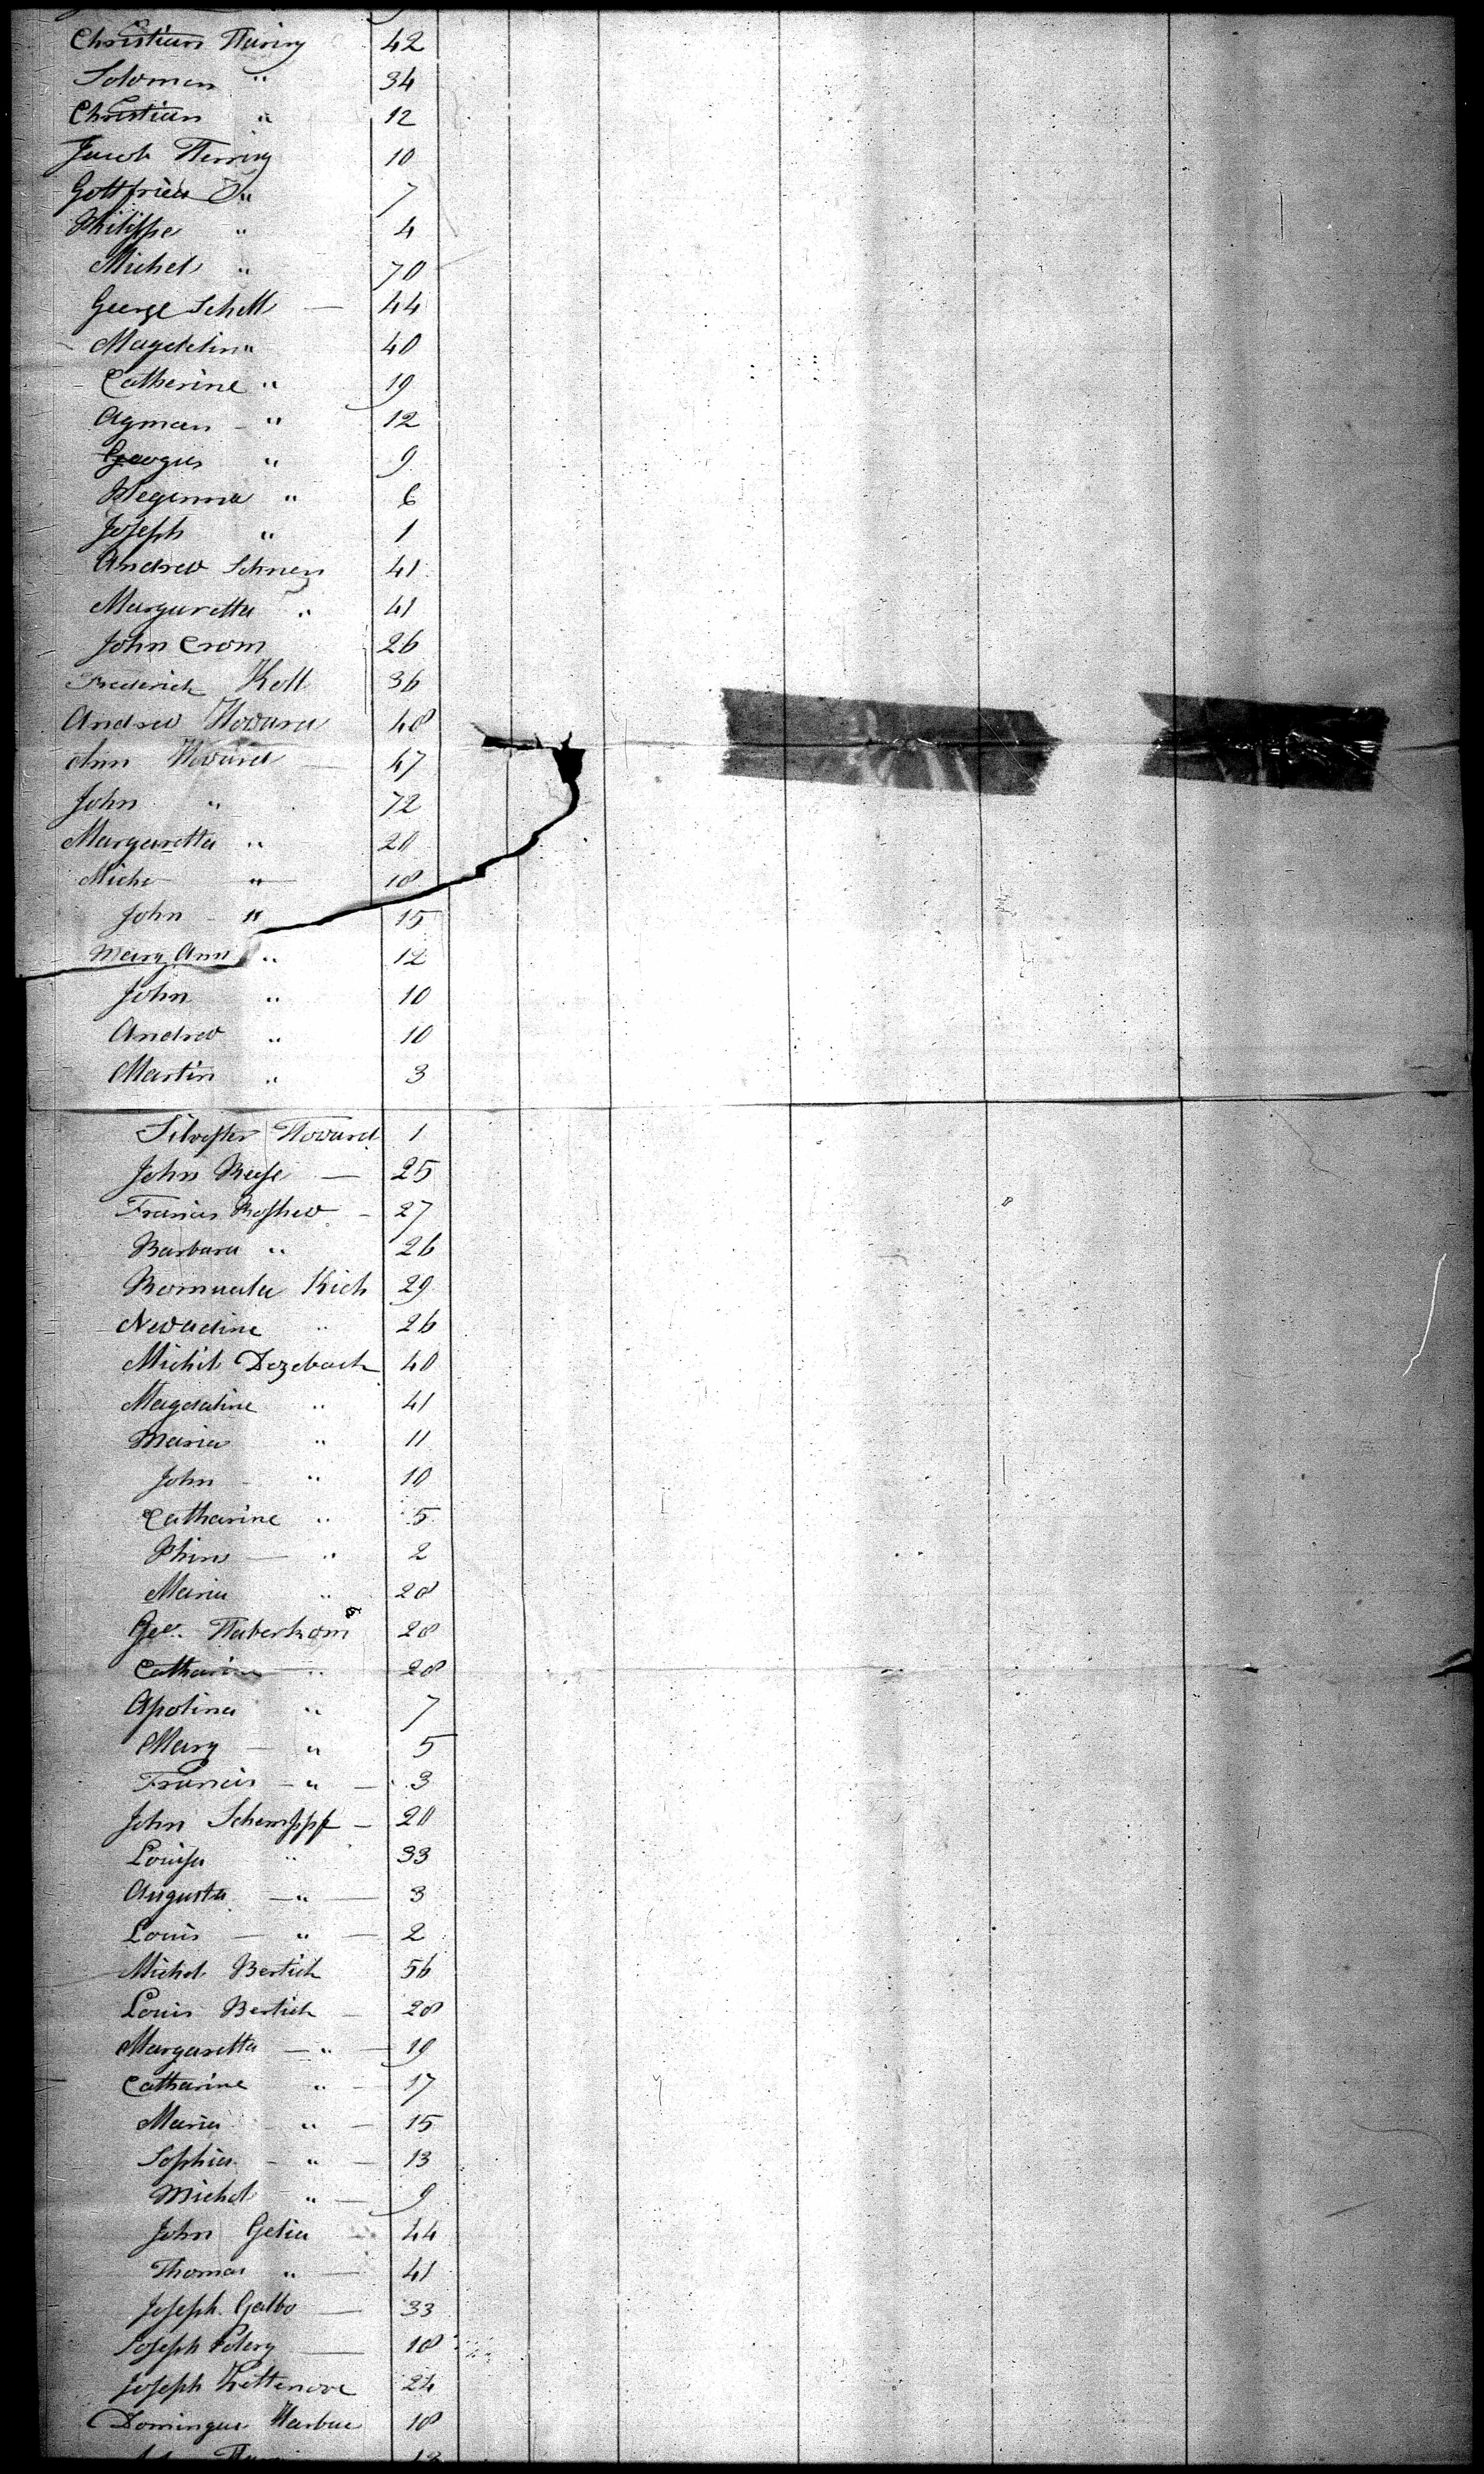 Christian Haring 42
Solomon " 34
Christian " 12
Jacob Herring 10
Gottfried " 7
Philippe " 4
Michel " 70
George Schell 44
Magdelin " 40
Catherine " 19
Agman " 12
Georges " 9
" 6
Joseph " 1
Andrew 41
Margaretta " 41
John Crom 26
Frederick Koll 36
Andrew Howard 48
Ann Howard 47
John " 72
Margaretta " 20
Miche " 18
John " 15
Mary Ann " 12
John " 10
Andrew " 10
Martin " 3
Silvester Howard 1
John Reese 25
Francis 27
Barbara " 26
Romualda Kich 29
Newadine " 26
Michel Dezebach 40
Magdaline " 41
Maria " 11
John " 10
Catharine " 5
" 2
Maria " 28
Geo. Haberkom 28
Catharine " 28
Apolina " 7
Mary " 5
Francis " 3
John Schemppf 20
Louisa " 33
Augusta " 3
Louis " 2
Michel Bertich 56
Louis Bertich 28
Margaretta " 19
Catharine " 17
Maria " 15
Sophia " 13
Michel " 9
John Gelia 44
Thomas " 41
Joseph Galbo 33
Joseph 18
Joseph 24
Domingue Harbue 18